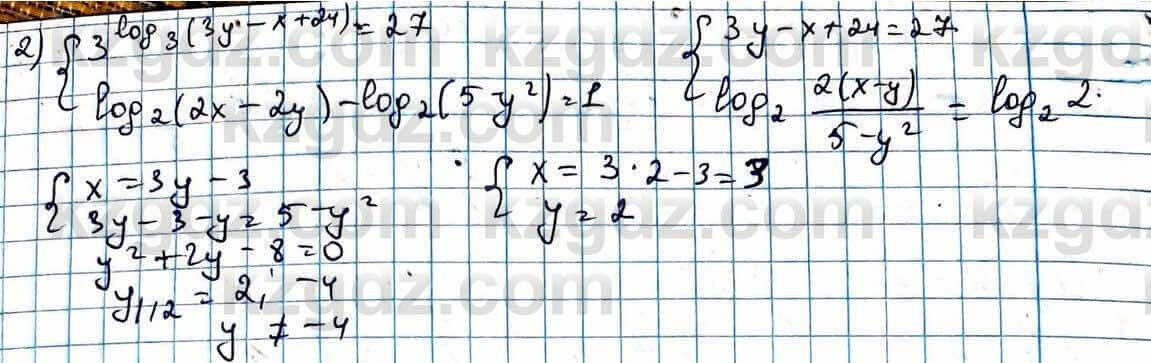 2) { 3^log₃(3y - x + 24) = 27
log₂(2x - 2y) - log₂(5 - y²) = 1
{ 3y - x + 24 = 27
log₂ 2(x-y)/(5-y²) = log₂ 2.
{ x = 3y - 3
3y - 3 - y = 5 - y²
y² + 2y - 8 = 0
y₁,₂ = 2, -4
y ≠ -4
{ x = 3 · 2 - 3 = 3
y = 2
kzgdz.com